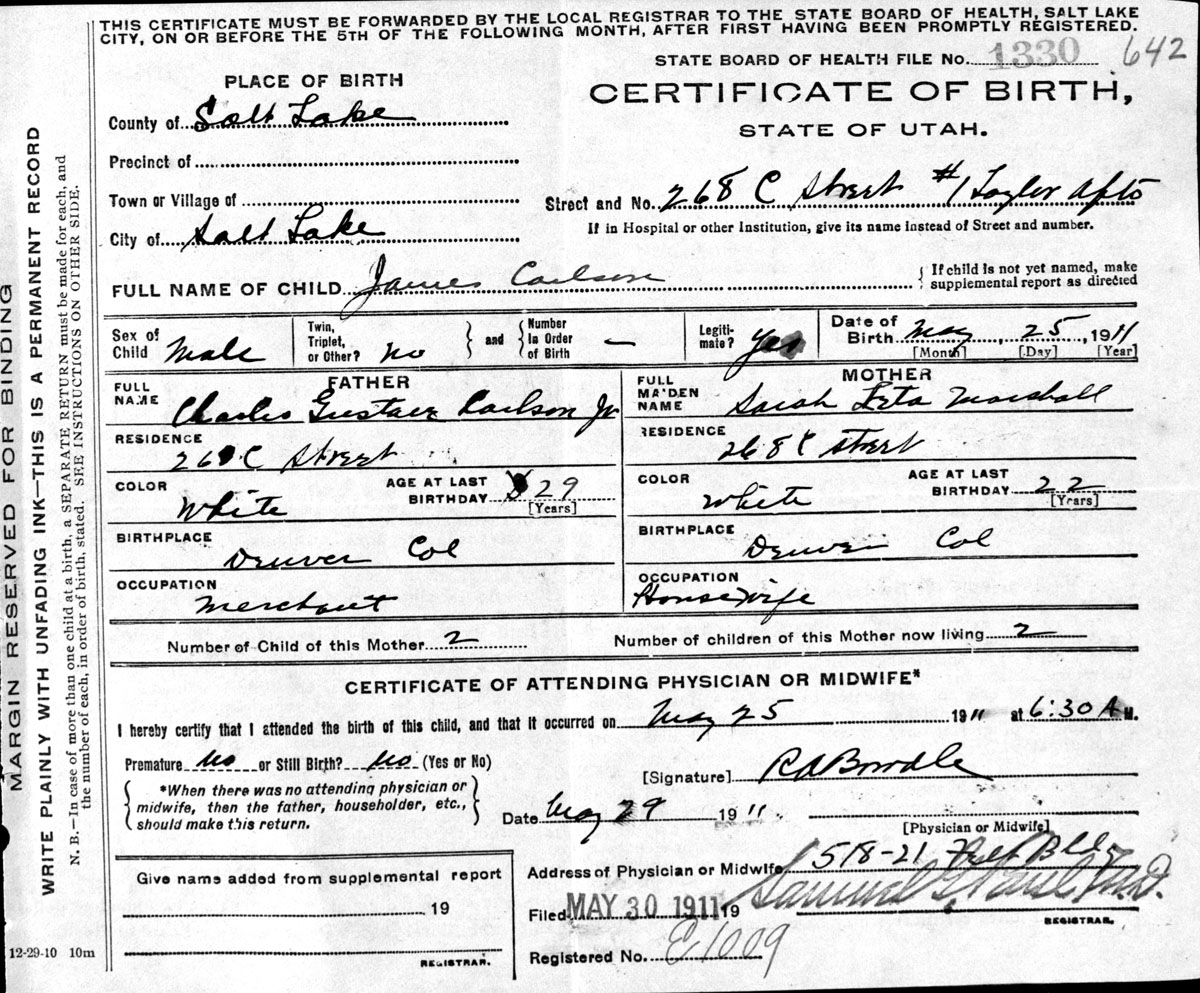 THIS CERTIFICATE MUST BE FORWARDED BY THE LOCAL REGISTRAR TO THE STATE BOARD OF HEALTH, SALT LAKE
CITY, ON OR BEFORE THE 5TH OF THE FOLLOWING MONTH, AFTER FIRST HAVING BEEN PROMPTLY REGISTERED.
STATE BOARD OF HEALTH FILE No. 1330 642
PLACE OF BIRTH
CERTIFICATE OF BIRTH,
STATE OF UTAH.
County of Salt Lake
Precinct of
Town or Village of
Street and No. 268 C Street #1 Taylor Apts
City of Salt Lake
If in Hospital or other Institution, give its name instead of Street and number.
FULL NAME OF CHILD James Carlson
{ If child is not yet named, make
supplemental report as directed
Sex of Child Male
Twin, Triplet, or Other? No
and
Number in Order of Birth —
Legiti-mate? Yes
Date of Birth May, 25, 1911
[Month] [Day] [Year]
FATHER
FULL NAME Charles Gustave Carlson Jr
RESIDENCE
268 C Street
COLOR White
AGE AT LAST BIRTHDAY 29
[Years]
BIRTHPLACE
Denver Col
OCCUPATION
Merchant
MOTHER
FULL MAIDEN NAME Sarah Leta Marshall
RESIDENCE
268 C Street
COLOR White
AGE AT LAST BIRTHDAY 22
[Years]
BIRTHPLACE
Denver Col
OCCUPATION
Housewife
Number of Child of this Mother 2 Number of children of this Mother now living 2
CERTIFICATE OF ATTENDING PHYSICIAN OR MIDWIFE*
I hereby certify that I attended the birth of this child, and that it occurred on May 25 1911 at 6:30 A M.
Premature No or Still Birth? No (Yes or No)
[Signature] RABowdle
*When there was no attending physician or
midwife, then the father, householder, etc.,
should make this return.
Date May 29 1911.
[Physician or Midwife]
Address of Physician or Midwife 518-21 Bldg
Give name added from supplemental report
19
REGISTRAR.
12-29-10 10m
Filed MAY 30 1911 19 Samuel G. M.D.
REGISTRAR.
Registered No. E1009
MARGIN RESERVED FOR BINDING
WRITE PLAINLY WITH UNFADING INK—THIS IS A PERMANENT RECORD
N. B.—In case of more than one child at a birth, a SEPARATE RETURN must be made for each, and
the number of each, in order of birth, stated. SEE INSTRUCTIONS ON OTHER SIDE.